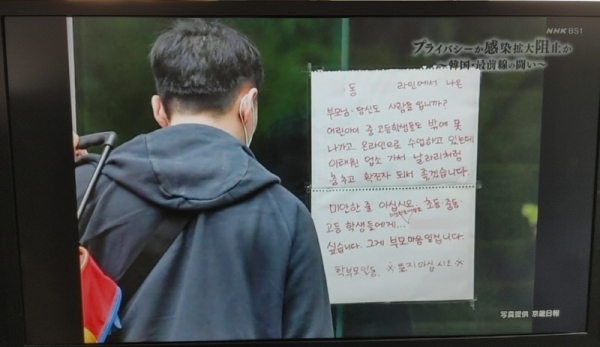 NHK BS1
プライバシーか感染拡大阻止か
～韓国・最前線の闘い～
동 라인에서 나온
부모님·당신도 사람들 입니까?
어린아이 중·고등학생들도 밖에 못
나가고 온라인으로 수업하고 있는데
이태원 업소 가서 날라리처럼
춤추고 확진자 되서 좋겠습니다.
미안한 줄 아십시오 초등·중등
고등 학생들에게...
싶습니다. 그게 부모마음일겁니다.
학부모일동. ※ 떼지마십시오 ※
写真提供 京畿日報